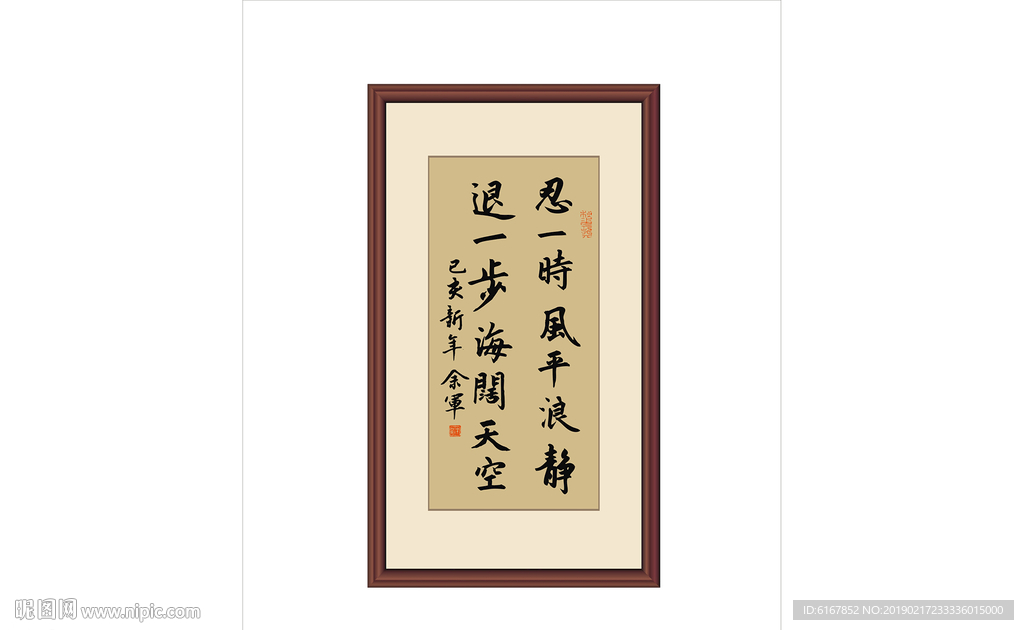 忍一時風平浪静
退一步海闊天空
己亥新年 余軍
昵图网 www.nipic.com
ID:6167852 NO:20190217233336015000